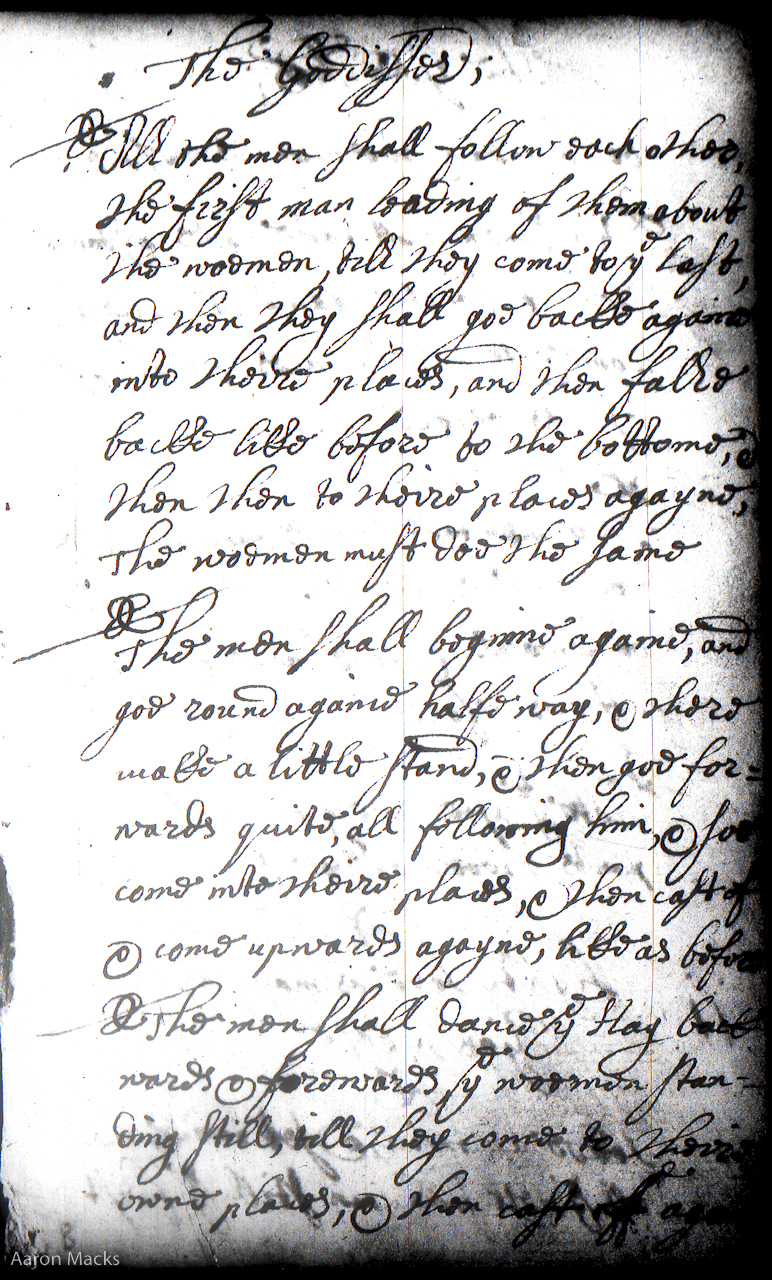 The Goddisses;
All the men shall follow each other,
the first man leading of them about
the woemen, till they come to yᵉ last,
and then they shall goe backe againe
into theire places, and then falle
backe like before to the bottome, &
then then to theire places agayne,
The woemen must doe the same
The men shall beginne againe, and
goe round againe halfe way, & there
make a little stand, & then goe for=
wards quite, all following him, & soe
come into theire places, & then cast of
& come upwards agayne, like as before
The men shall dance yᵉ Hay back
wards & forewards, yᵉ woemen stan=
ding still, till they come to theire
owne places, & then cast off
Aaron Macks